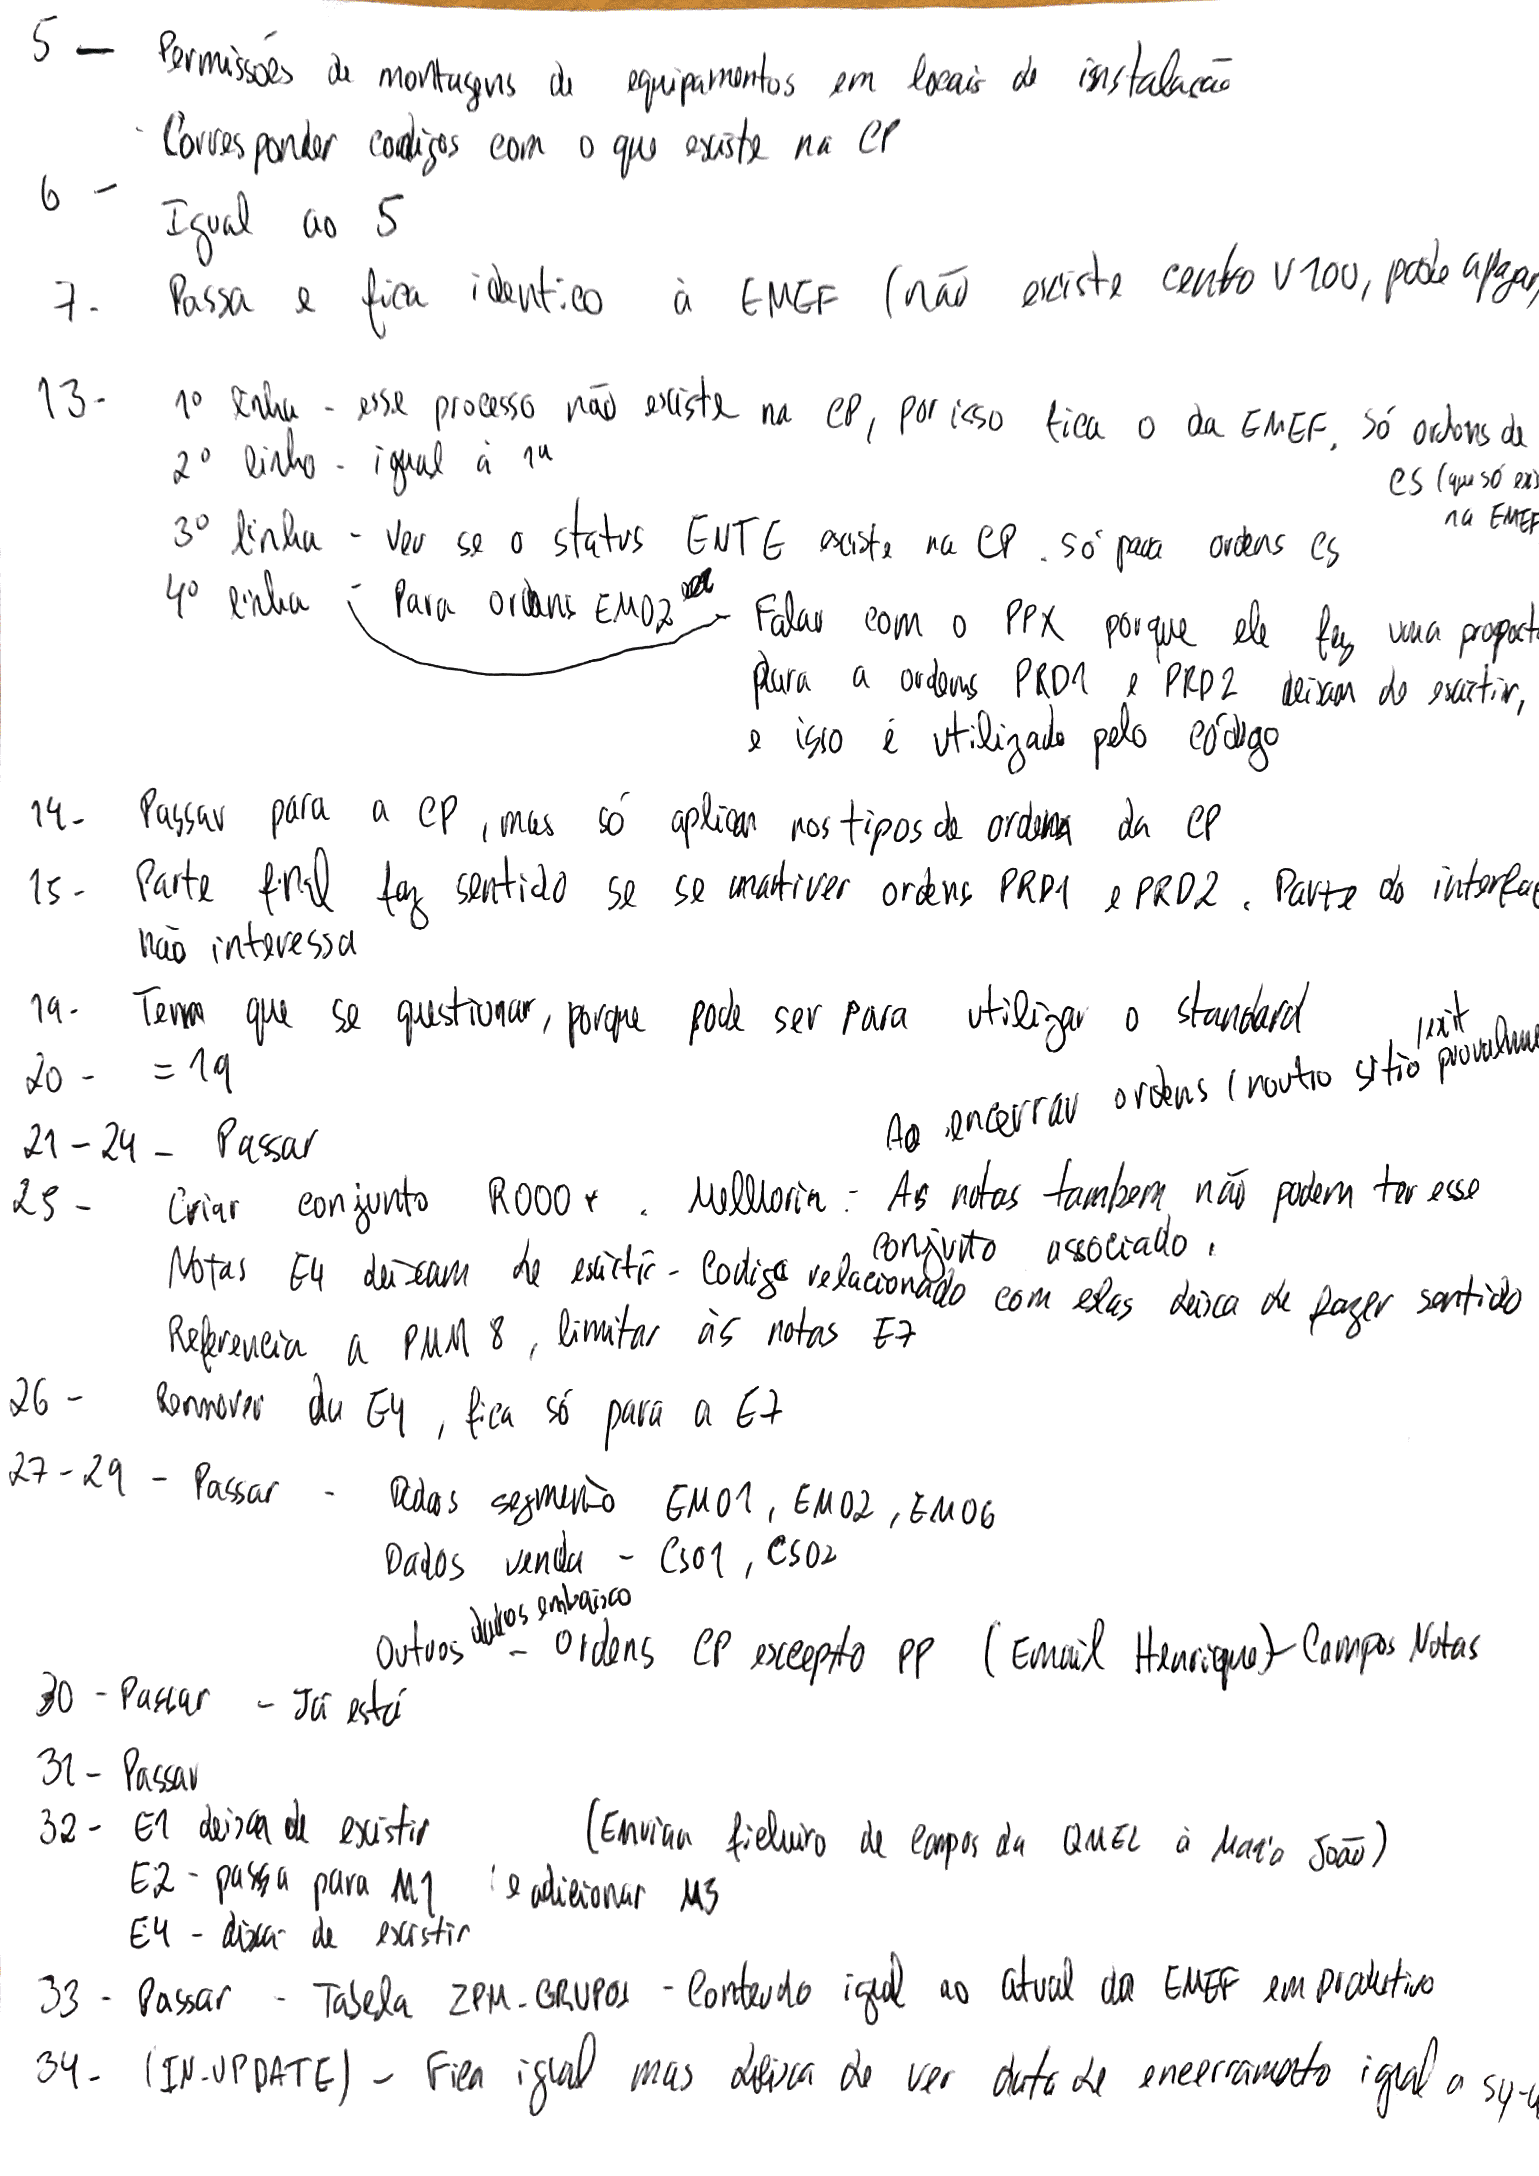 5 - Permissões de montagens de equipamentos em locais de instalação
Corresponder codigos com o que existe na CP
6 -
Igual ao 5
7. Passa e fica identico à EMEF (não existe centro V100, pode apagar,
13- 1º linha - esse processo não existe na CP, por isso fica o da EMEF. Só ordens de
CS (que só exis
na EMEF
2º linha - igual à 1ª
3º linha - Ver se o status ENTE existe na CP. Só para ordens CS
4º linha - Para ordens EM02 - Falar com o PPX porque ele fez uma propost
para a ordens PRD1 e PRD2 deixam de existir,
e isso é utilizado pelo código
14- Passar para a CP, mas só aplicar nos tipos de ordens da CP
15- Parte final faz sentido se se mantiver ordens PRD1 e PRD2. Parte do interfac
não interessa
19- Temos que se questionar, porque pode ser para utilizar o standard
20 - = 19
Ao encerrar ordens (noutro sítio /exit provalme
21 - 24 - Passar
25 - Criar conjunto R000*. Melhoria - As notas também não podem ter esse
conjuto associado.
Notas E4 deixam de existir - Codigo relacionado com elas deixa de fazer sentido
Referencia a PMM8, limitar às notas E7
26 - Remover da E4, fica só para a E7
27 - 29 - Passar - Dados segmento EM01, EM02, EM06
Dados venda - CS01, CS02
Outros dados embaixo - Ordens CP excepto PP (Email Henrique) - Campos Notas
30 - Passar - Já está
31 - Passar
32 - E1 deixa de existir (Enviar ficheiro de campos da QMEL à Maria João)
E2 - passa para M1 e adicionar M3
E4 - deixa de existir
33 - Passar - Tabela ZPM_GRUPOS - Conteudo igual ao atual da EMEF em produtivo
34 - (IN_UPDATE) - Fica igual mas deixa de ver data de encerramento igual a sy-